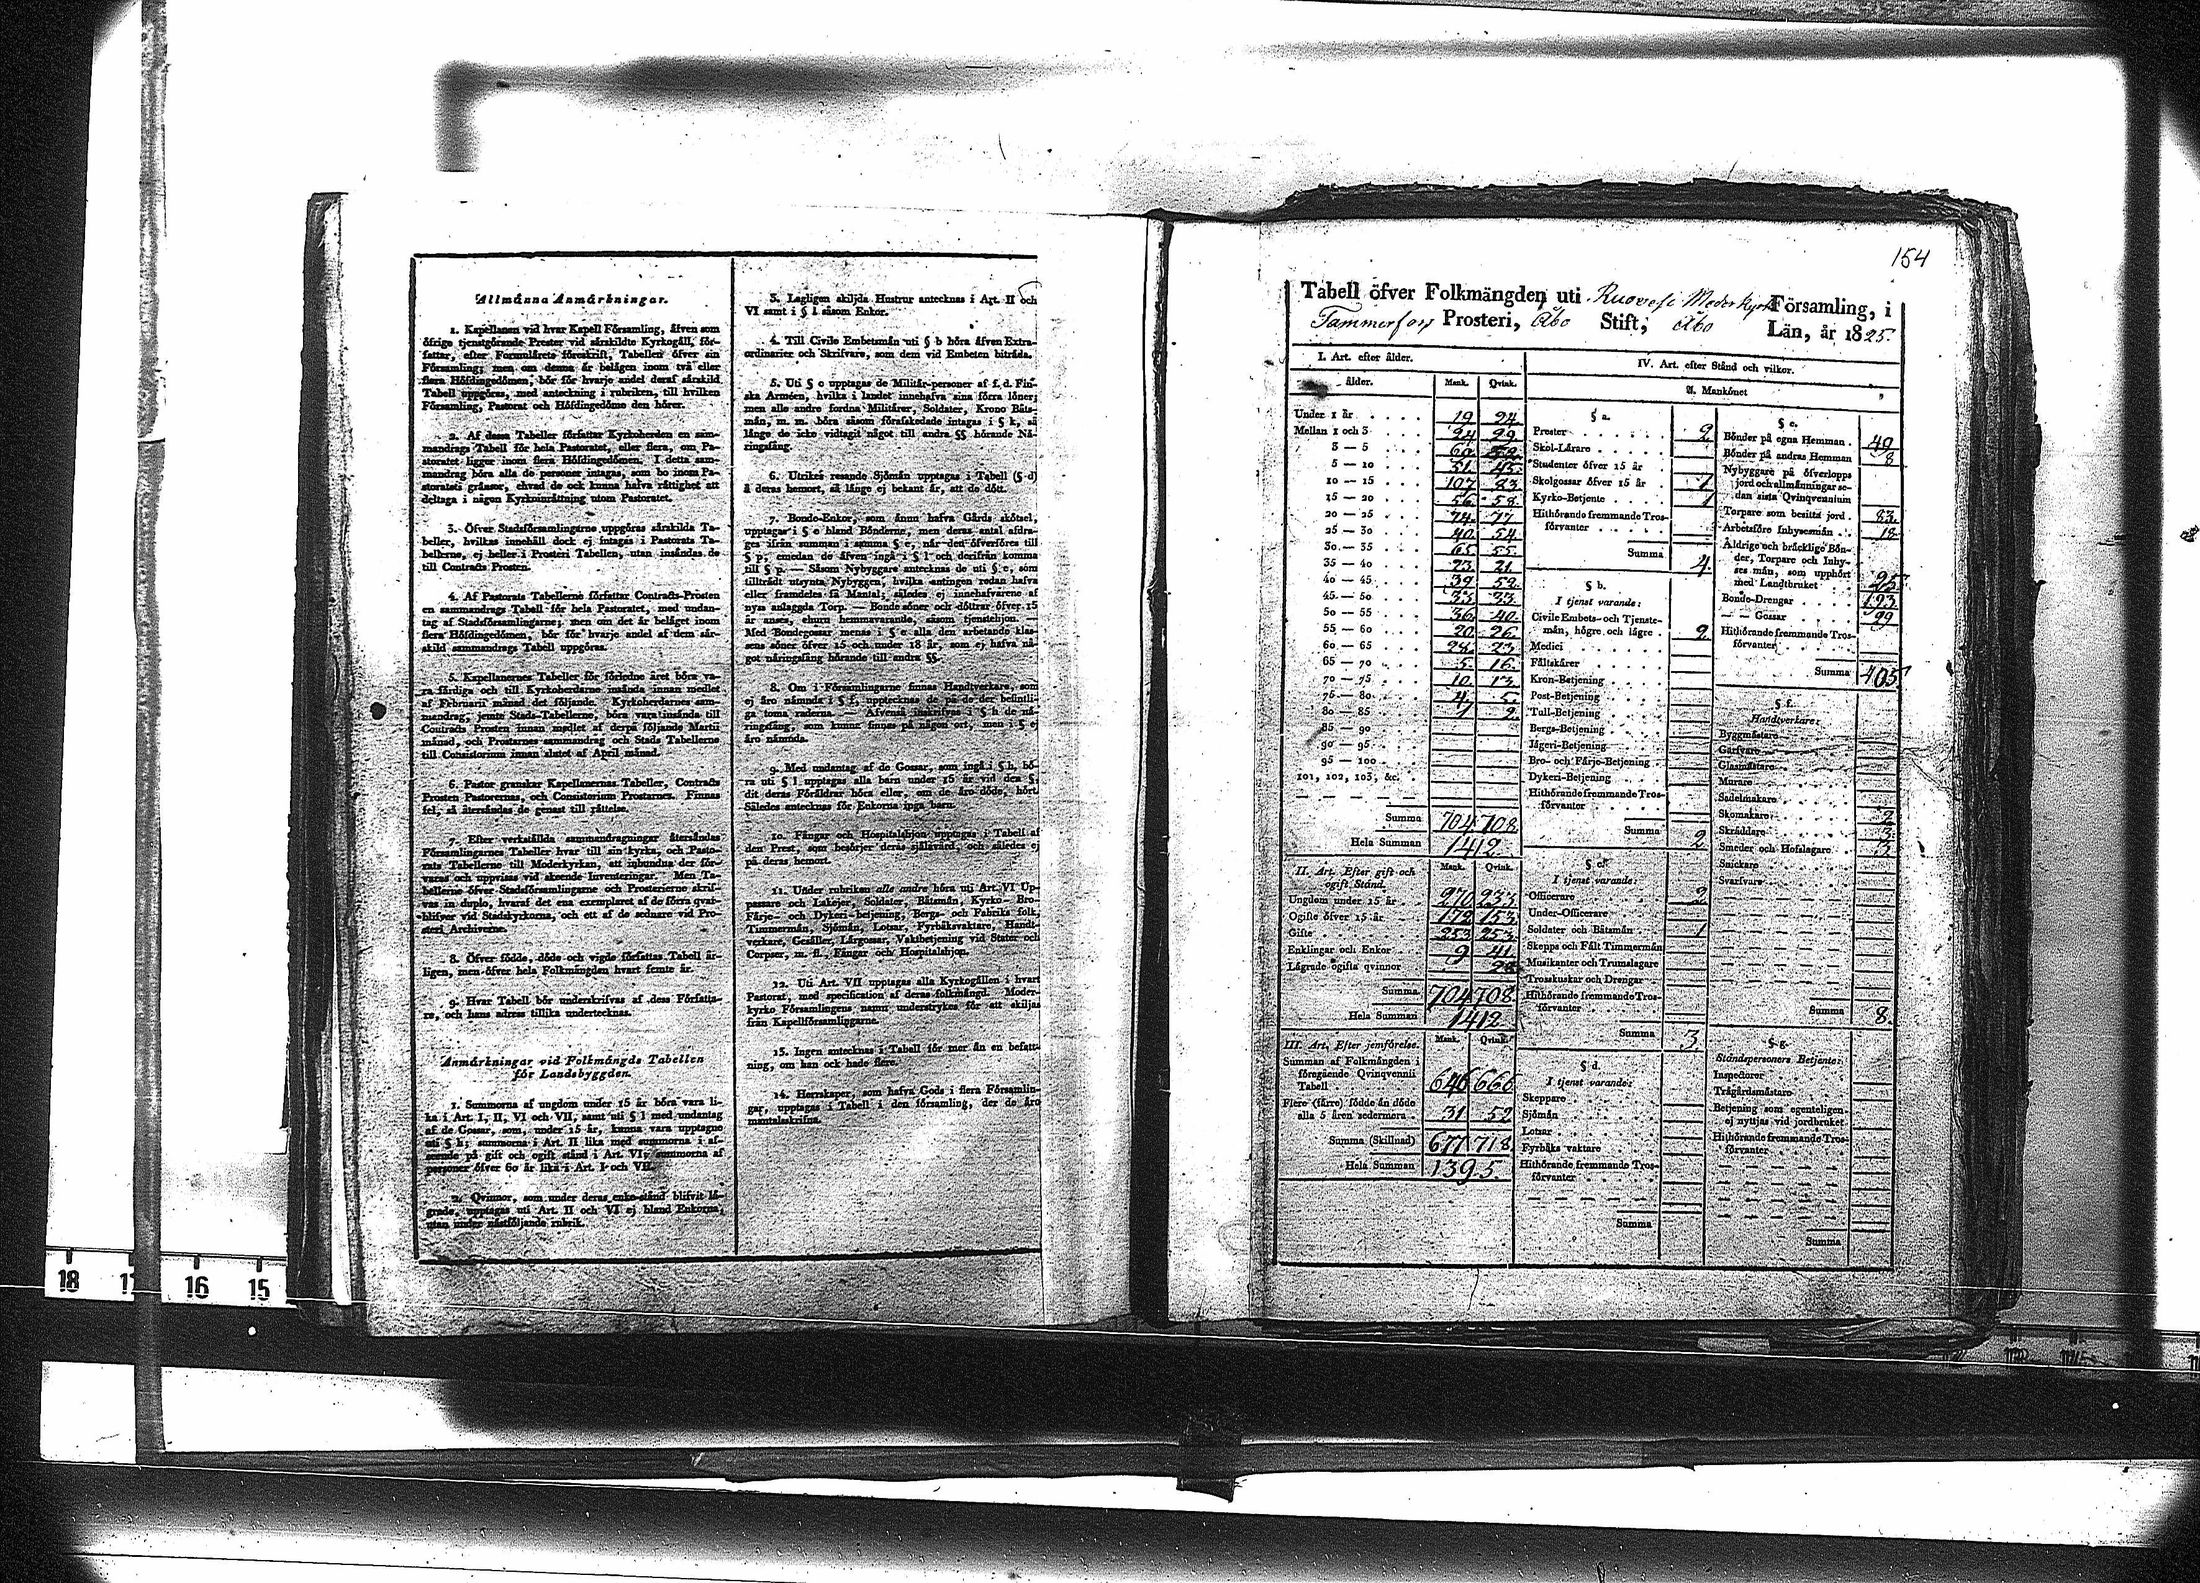 Allmänna Anmärkningar.
1. Kapellanen vid hvar Kapell Församling, äfven som
öfrige tjenstgörande Prester vid särskildte Kyrkogäll, för-
fattar, efter Formulärets föreskrift, Tabeller öfver sin
Församling; men om denna är belägen inom två eller
flera Höfdingedömen, bör för hvarje andel deraf särskild
Tabell uppgöras, med anteckning i rubriken, till hvilken
Församling, Pastorat och Höfdingedöme den hörer.
2. Af dessa Tabeller författar Kyrkoherden en sam-
mandrags Tabell för hela Pastoratet, eller flera, om Pa-
storatet ligger inom flera Höfdingedömen. I detta sam-
mandrag böra alla de personer intagas, som bo inom Pa-
storatets gränsor, ehvad de ock kunna hafva rättighet att
deltaga i någon Kyrkoinrättning utom Pastoratet.
3. Öfver Stadsförsamlingarne uppgöras särskilda Ta-
beller, hvilkas innehåll dock ej intages i Pastorats Ta-
bellerne, ej heller i Prosteri Tabellen, utan insändas de
till Contracts Prosten.
4. Af Pastorats Tabellerne författar Contracts-Prosten
en sammandrags Tabell för hela Pastoratet, med undan-
tag af Stadsförsamlingarne; men om det är beläget inom
flera Höfdingedömen, bör för hvarje andel af dem sär-
skild sammandrags Tabell uppgöras.
5. Kapellanernes Tabeller för förledne året böra va-
ra färdiga och till Kyrkoherdarne insända innan medlet
af Februarii månad det följande. Kyrkoherdarnes sam-
mandrag, jemte Stads-Tabellerne, böra vara insände till
Contracts Prosten innan medlet af derpå följande Martii
månad, och Prostarnes sammandrag och Stads Tabellerne
till Consistorium innan slutet af April månad.
6. Pastor granskar Kapellanernas Tabeller, Contracts
Prosten Pastorernas, och Consistorium Prostarnes. Finnas
fel, så återsändas de genast till rättelse.
7. Efter verkställda sammandragningar återsändas
Församlingarnes Tabeller hvar till sin kyrka, och Pasto-
rats Tabellerne till Moderkyrkan, att inbundna der för-
varas och uppvisas vid skeende Inventeringar. Men Ta-
bellerne öfver Stadsförsamlingarne och Prosterierne skrif-
vas in duplo, hvaraf det ena exemplaret af de förra qvar-
blifver vid Stadskyrkorna, och ett af de sednare vid Pro-
steri Archiverne.
8. Öfver födde, döde och vigde författas Tabell är-
ligen, men öfver hela Folkmängden hvart femte år.
9. Hvar Tabell bör underskrifvas af dess Författa-
re, och hans adress tillika undertecknas.
Anmärkningar vid Folkmängds Tabellen
för Landsbyggden.
1. Summorna af ungdom under 15 år böra vara li-
ka i Art. I, II, VI och VII, samt uti § l med undantag
af de Gossar, som, under 15 år, kunna vara upptagne
uti § h; summorna i Art. II lika med summorna i af-
seende på gift och ogift stånd i Art. VI; summorna af
personer öfver 60 år lika i Art. I och VII.
2. Qvinnor, som under deras enke-stånd blifvit lä-
grade, upptagas uti Art. II och VI ej bland Enkorna,
utan under nästföljande rubrik.
3. Lagligen skiljda Hustrur antecknas i Art. II och
VI samt i § l såsom Enkor.
4. Till Civile Embetsmän uti § b höra äfven Extra-
ordinarier och Skrifvare, som dem vid Embeten biträda.
5. Uti § c upptagas de Militär-personer af f. d. Fin-
ska Arméen, hvilka i landet innehafva sina förra löner;
men alle andre fordna Militärer, Soldater, Krono Båts-
män, m. m. böra såsom förafskedade intagas i § k, så
länge de icke vidtagit något till andra §§ hörande Nä-
ringsfång.
6. Utrikes resande Sjömän upptagas i Tabell (§ d)
å deras hemort, så länge ej bekant är, att de dött.
7. Bonde-Enkor, som ännu hafva Gårds skötsel,
upptagas i § e bland Bönderne, men deras antal afdra-
ges ifrån summan i samma § e, när den öfverföres till
§ p, emedan de äfven ingå i § l och derifrån komma
till § p. — Såsom Nybyggare antecknas de uti § e, som
tillträdt utsynta Nybyggen, hvilka antingen redan hafva
eller framdeles få Mantal; således ej innehafvarene af
nyss anlaggda Torp. — Bonde söner och döttrar öfver 15
år anses, ehuru hemmavarande, såsom tjenstehjon. —
Med Bondegossar menas i § e alla den arbetande klas-
sens söner öfver 15 och under 18 år, som ej hafva nå-
got näringsfång hörande till andra §§.
8. Om i Församlingarne finnas Handtverkare, som
ej äro nämnda i § f, upptecknas de på de der befintli-
ga toma raderna. Äfvenså inskrifves i § h de nä-
ringsfång, som kunna finnas på någon ort, men i § ej
äro nämnda.
9. Med undantag af de Gossar, som ingå i § h, bö-
ra uti § l upptagas alla barn under 15 år vid den §,
dit deras Föräldrar höra eller, om de äro döde, hört.
Således antecknas för Enkorna inga barn.
10. Fångar och Hospitalshjon upptagas i Tabell af
den Prest, som besörjer deras själavård, och således ej
på deras hemort.
11. Under rubriken alle andre höra uti Art. VI Up-
passare och Lakejer, Soldater, Båtsmän, Kyrko- Bro-
Färje- och Dykeri-betjening, Bergs- och Fabriks folk,
Timmermän, Sjömän, Lotsar, Fyrbåksvaktare, Handt-
verkare, Gesäller, Lärgossar, Vaktbetjening vid Stater och
Corpser, m. fl., Fångar och Hospitalshjon.
12. Uti Art. VII upptagas alla Kyrkogällen i hvart
Pastorat, med specification af deras folkmängd. Moder-
kyrko Församlingens namn understrykes för att skiljas
från Kapellförsamlingarne.
13. Ingen antecknas i Tabell för mer än en befatt-
ning, om han ock hade flere.
14. Herrskaper, som hafva Gods i flera Församlin-
gar, upptagas i Tabell i den församling, der de äro
mantalsskrifna.
154
Tabell öfver Folkmängden uti Ruovesi Moderkyrko Församling, i
Tammerfors Prosteri, Åbo Stift, Åbo Län, år 1825.
I. Art. efter ålder.
ålder. Mank. Qvink.
Under 1 år 19 24
Mellan 1 och 3 24 29
3 — 5 60
5 — 10 51 45
10 — 15 107 83
15 — 20 56 58
20 — 25 74 77
25 — 30 40 54
30 — 35 65 55
35 — 40 23 21
40 — 45 39 52
45 — 50 33 33
50 — 55 36 40
55 — 60 20 26
60 — 65 28 23
65 — 70 5 16
70 — 75 10 13
75 — 80 4 5
80 — 85 1 2
85 — 90
90 — 95
95 — 100
101, 102, 103, &c.
Summa 704 708
Hela Summan 1412
II. Art. Efter gift och
ogift Stånd. Mank. Qvink.
Ungdom under 15 år 270 233
Ogifte öfver 15 år 172 153
Gifte 253 253
Enklingar och Enkor 9 41
Lägrade ogifta qvinnor 28
Summa 704 708
Hela Summan 1412
III. Art. Efter jemförelse. Mank. Qvink.
Summan af Folkmängden i
föregående Qvinqvennii
Tabell 646 666
Flere (färre) födde än döde
alla 5 åren sedermera 31 52
Summa (Skillnad) 677 718
Hela Summan 1395.
IV. Art. efter Stånd och vilkor.
A. Mankönet
§ a.
Prester 2
Skol-Lärare
Studenter öfver 15 år
Skolgossar öfver 15 år 1
Kyrko-Betjente 1
Hithörande fremmande Tros-
förvanter
Summa 4
§ b.
I tjenst varande:
Civile Embets- och Tjenste-
män, högre och lägre 2
Medici
Fältskärer
Kron-Betjening
Post-Betjening
Tull-Betjening
Bergs-Betjening
Jägeri-Betjening
Bro- och Färje-Betjening
Dykeri-Betjening
Hithörande fremmande Tros-
förvanter
Summa 2
§ c.
I tjenst varande:
Officerare 2
Under-Officerare
Soldater och Båtsmän 1
Skepps och Fält Timmermän
Musikanter och Trumslagare
Trosskuskar och Drengar
Hithörande fremmande Tros-
förvanter
Summa 3
§ d.
I tjenst varande:
Skeppare
Sjömän
Lotsar
Fyrbåks vaktare
Hithörande fremmande Tros-
förvanter
Summa
§ e.
Bönder på egna Hemman 49
Bönder på andras Hemman 8
Nybyggare på öfverlopps
jord och allmänningar se-
dan sista Qvinqvennium
Torpare som besitta jord 83
Arbetsföre Inhysesmän 18
Åldrige och bräcklige Bön-
der, Torpare och Inhy-
ses män, som upphört
med Landtbruket 25
Bonde-Drengar 193
— — Gossar 29
Hithörande fremmande Tros-
förvanter
Summa 405
§ f.
Handtverkare:
Byggmästare
Garfvare
Glasmästare
Murare
Sadelmakare
Skomakare 2
Skräddare 3
Smeder och Hofslagare 3
Snickare
Svarfvare
Summa 8
§ g.
Ståndspersoners Betjente:
Inspectorer
Trägårdsmästare
Betjening som egenteligen
ej nyttjas vid jordbruket
Hithörande fremmande Tros-
förvanter
Summa
18 17 16 15